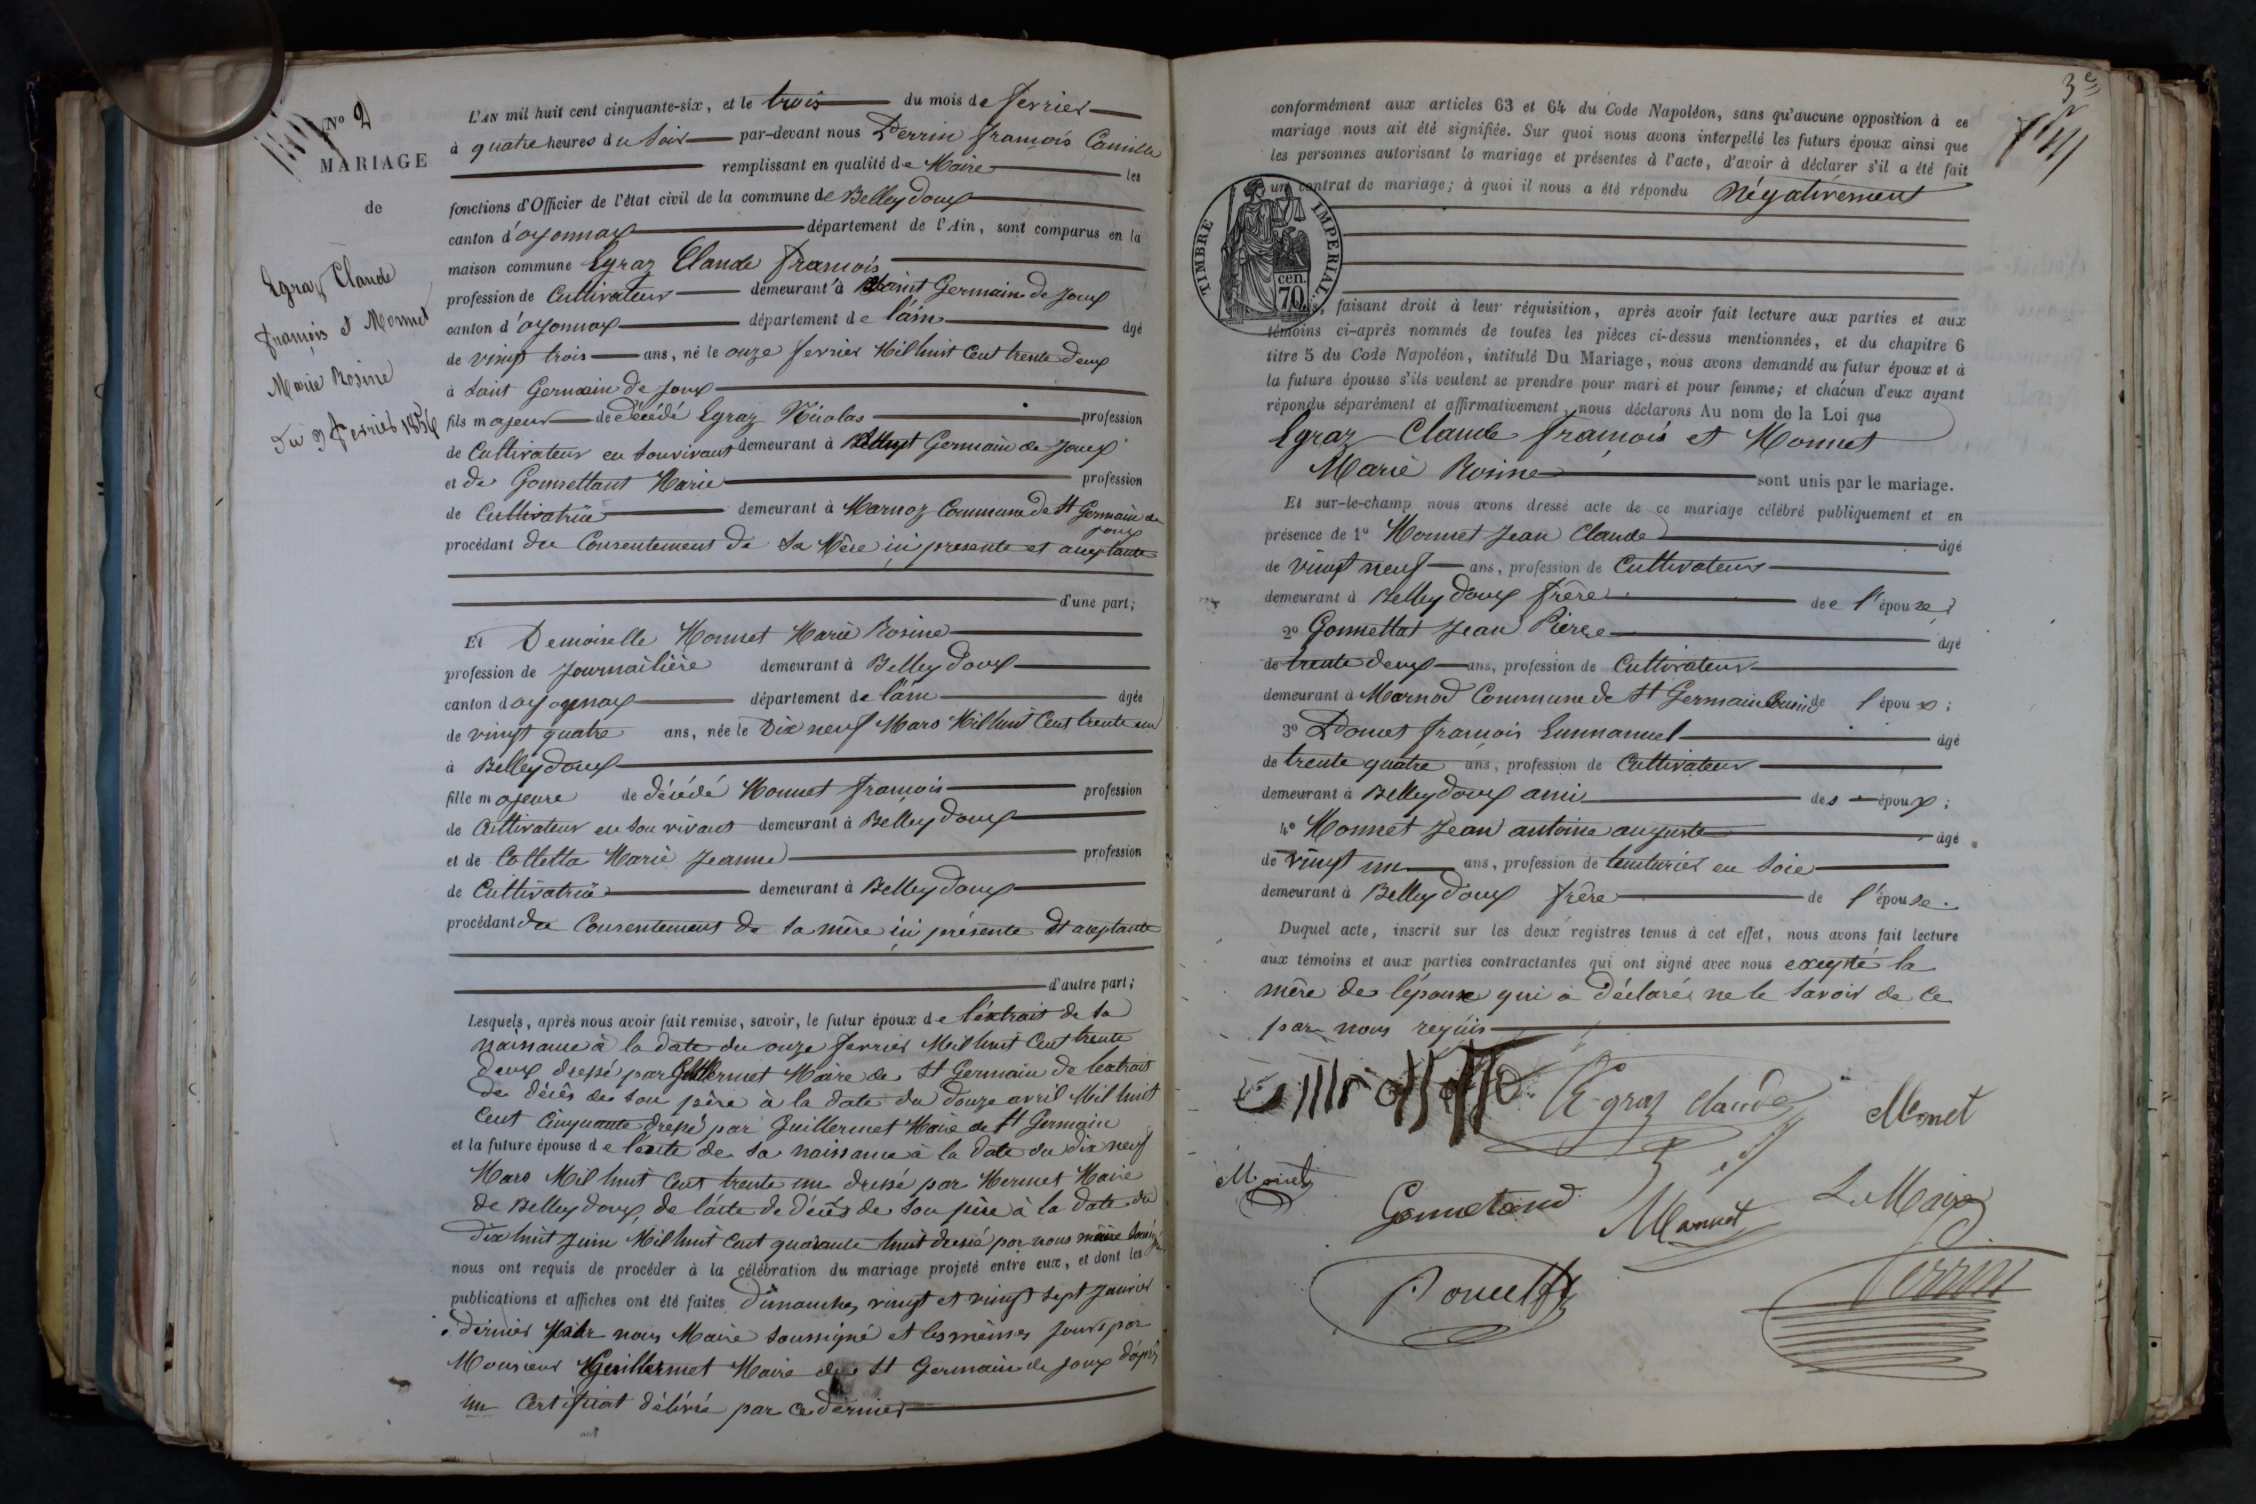 N° 2
MARIAGE
de
Egraz Claude
françois et Monnet
Marie Rosine
Du 3 fevrier 1856
L'AN mil huit cent cinquante-six, et le trois du mois de fevrier
à quatre heures du soir par-devant nous Perrin françois Camille
remplissant en qualité de Maire les
fonctions d'Officier de l'état civil de la commune de Belleydoux
canton d'oyonnax département de l'Ain, sont comparus en la
maison commune Egraz Claude françois
profession de Cultivateur demeurant à Saint Germain de Joux
canton d'oyonnax département de l'ain âgé
de vingt trois ans, né le onze fevrier Mil huit Cent trente deux
à Saint Germain de Joux
fils majeur de décédé Egraz Nicolas profession
de Cultivateur en son vivant demeurant à Germain de Joux
et de Gonnettant Marie profession
de Cultivatrice demeurant à Marnoz Commune de St Germain de
Joux
procédant du Consentement de Sa Mère ici présente et acceptante
d'une part;
Et Demoiselle Monnet Marie Rosine
profession de Journalière demeurant à Belleydoux
canton d'oyonnax département de l'ain âgée
de vingt quatre ans, née le Dix neuf Mars Mil huit Cent trente un
à Belleydoux
fille majeure de décédé Monnet françois profession
de Cultivateur en son vivant demeurant à Belleydoux
et de Colletta Marie Jeanne profession
de Cultivatrice demeurant à Belleydoux
procédant du Consentement de sa mère ici présente et acceptante
d'autre part;
Lesquels, après nous avoir fait remise, savoir, le futur époux de l'extrait de sa
naissance à la date du onze fevrier Mil huit Cent trente
deux dressé par Guillermet Maire de St Germain de l'extrait
de décès de son père à la date du douze avril Mil huit
Cent Cinquante dressé par Guillermet Maire de St Germain
et la future épouse de l'acte de sa naissance à la date du dix neuf
Mars Mil huit Cent trente un dressé par Mermet Maire
de Belleydoux, de l'acte de décès de son père à la date du
Dix huit Juin Mil huit Cent quarante huit dressé par nous maire
nous ont requis de procéder à la célébration du mariage projeté entre eux, et dont les
publications et affiches ont été faites Dimanches vingt et vingt sept Janvier
dernier par nous Maire soussigné et les mêmes jours par
Monsieur Guillermet Maire de St Germain de Joux d'après
un Certificat délivré par ce dernier
3e
conformément aux articles 63 et 64 du Code Napoléon, sans qu'aucune opposition à ce
mariage nous ait été signifiée. Sur quoi nous avons interpellé les futurs époux ainsi que
les personnes autorisant le mariage et présentes à l'acte, d'avoir à déclarer s'il a été fait
un contrat de mariage; à quoi il nous a été répondu Négativement
TIMBRE IMPERIAL
cen.
70
faisant droit à leur réquisition, après avoir fait lecture aux parties et aux
témoins ci-après nommés de toutes les pièces ci-dessus mentionnées, et du chapitre 6
titre 5 du Code Napoléon, intitulé Du Mariage, nous avons demandé au futur époux et à
la future épouse s'ils veulent se prendre pour mari et pour femme; et chacun d'eux ayant
répondu séparément et affirmativement, nous déclarons Au nom de la Loi que
Egraz Claude françois et Monnet
Marie Rosine sont unis par le mariage.
Et sur-le-champ nous avons dressé acte de ce mariage célébré publiquement et en
présence de 1° Monnet Jean Claude âgé
de vingt neuf ans, profession de Cultivateur
demeurant à Belleydoux frère de l'épouse;
2° Gonnettat Jean Pierre âgé
de trente deux ans, profession de Cultivateur
demeurant à Marnod Commune de St Germain Cousin de l'époux;
3° françois Emmanuel âgé
de trente quatre ans, profession de Cultivateur
demeurant à Belleydoux ami des époux;
4° Monnet Jean antoine auguste âgé
de vingt un ans, profession de teinturier en soie
demeurant à Belleydoux frère de l'épouse.
Duquel acte, inscrit sur les deux registres tenus à cet effet, nous avons fait lecture
aux témoins et aux parties contractantes qui ont signé avec nous excepté la
mère de l'épouse qui a déclaré ne le savoir de ce
par nous requis
Egraz claude
Monet
Monet
Gonnetand
Monnet
Le Maire
Perrin